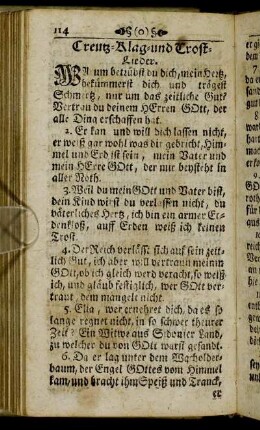 114 (0)
Creutz-Klag-und Trost-
Lieder.
WArum betrübst du dich, mein Hertz,
bekümmerst dich und trägest
Schmertz, nur um das zeitliche Gut?
Vertrau du deinem HErren GOtt, der
alle Ding erschaffen hat.
2. Er kan und will dich lassen nicht,
er weiß gar wohl was dir gebricht, Him-
mel und Erd ist sein, mein Vater und
mein HErre GOtt, der mir beysteht in
aller Noth.
3. Weil du mein GOtt und Vater bist,
dein Kind wirst du verlassen nicht, du
väterliches Hertz, ich bin ein armer Er-
denkloß, auff Erden weiß ich keinen
Trost.
4. Der Reich verlässt sich auf sein zeit-
lich Gut, ich aber will vertrauen meinem
GOtt, ob ich gleich werd veracht, so weiß
ich, und gläub festiglich, wer GOtt ver-
traut, dem mangelt nicht.
5. Elia, wer ernehret dich, da es so
lange regnet nicht, in so schwer theurer
Zeit? Ein Witwe aus Sidonier Land,
zu welcher du von GOtt warst gesandt.
6. Da er lag unter dem Wacholder-
baum, der Engel GOttes vom Himmel
kam, und bracht ihm Speiß und Tranck,